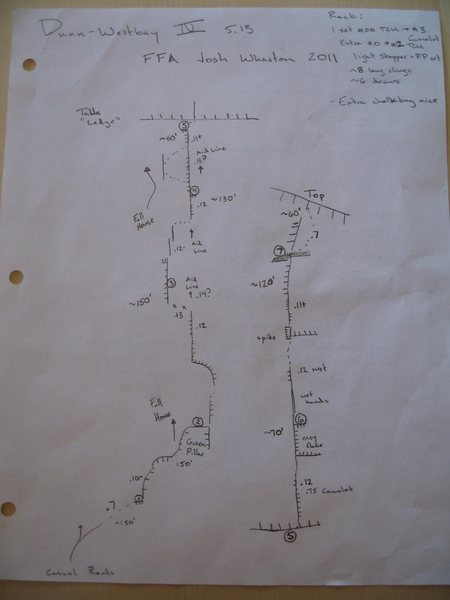 Dunn-Westbay IV 5.13
FFA Josh Wharton 2011
Rack:
1 set #00 TCU → #3 Camalot
Extra #0 → #2 TCU
light stopper + RP set
~8 long slings
~6 draws
- Extra chalkbag nice
Table
"Ledge"
5
~60'
.11+
Aid Line
.13?
4
.12
~130'
Full
House
.12-
Aid
Line
3
~150'
Aid
Line
.14?
x x
.13
.12
Full
House
2
Green
Pillar
150'
.10-
1
.7
~150'
Casual Route
Top
~60'
.7
7
~120'
.11+
spike
.12 wet
wet
hands
6
~70'
easy
flake
.12
.75 Camalot
5